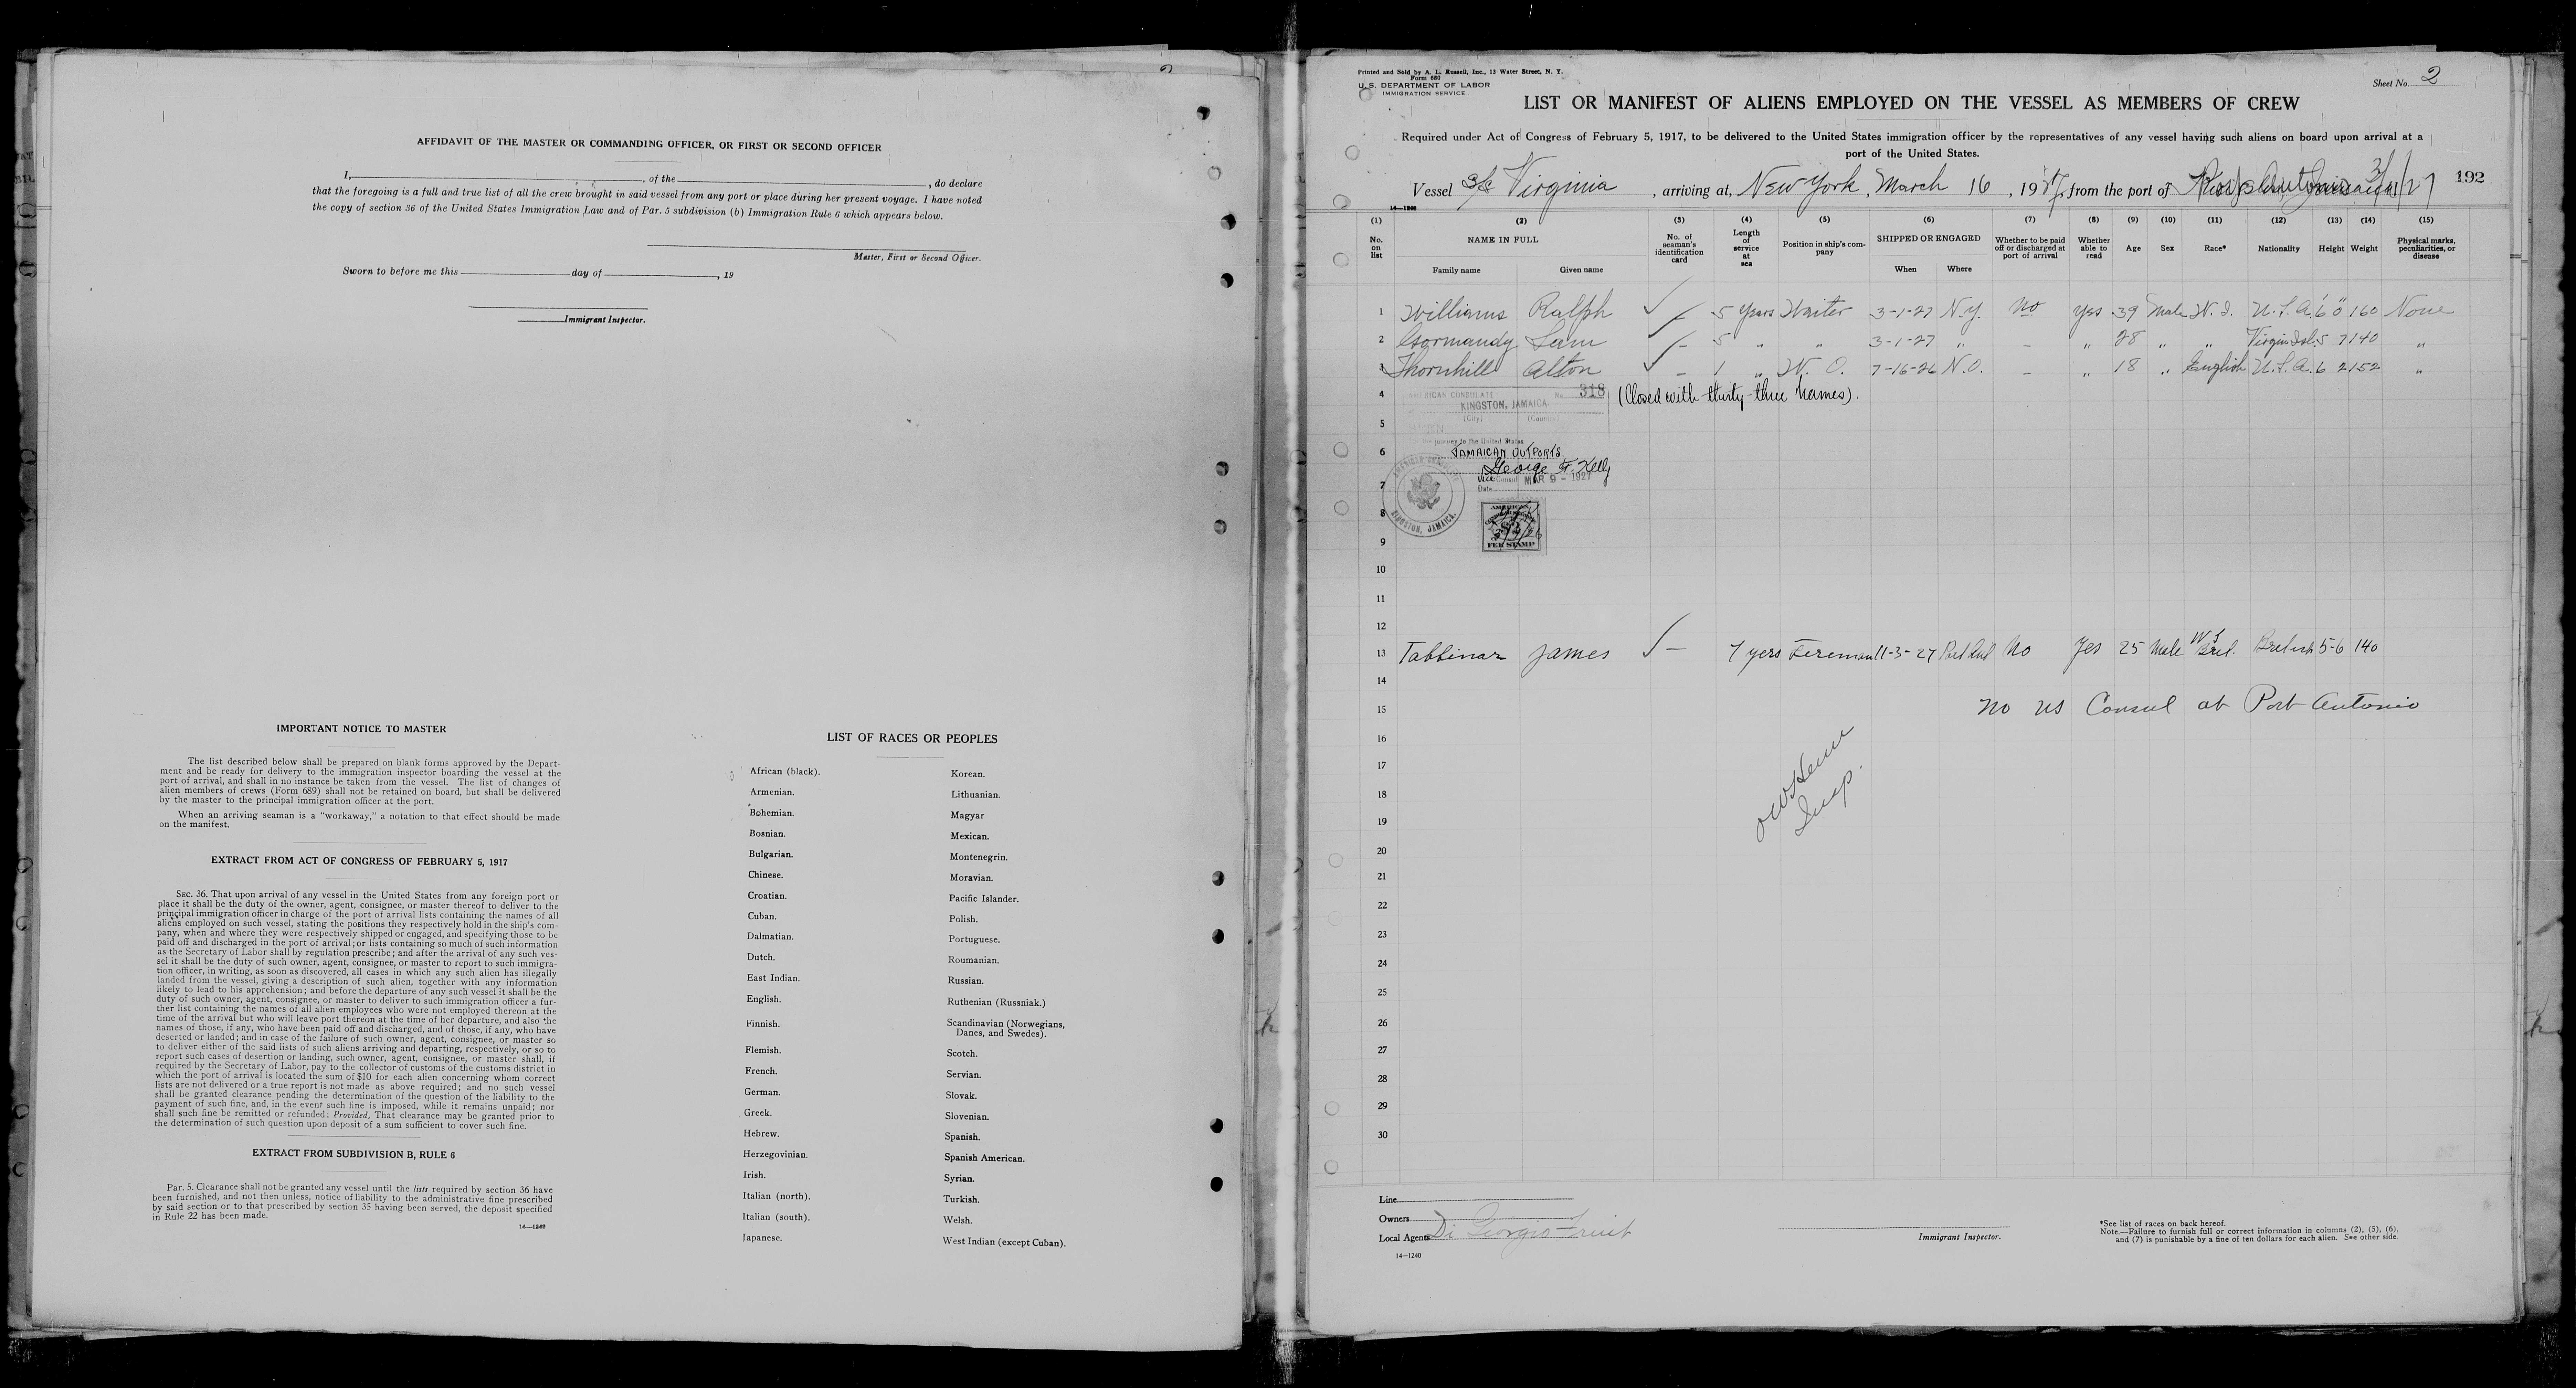 AFFIDAVIT OF THE MASTER OR COMMANDING OFFICER, OR FIRST OR SECOND OFFICER
I, , of the , do declare
that the foregoing is a full and true list of all the crew brought in said vessel from any port or place during her present voyage. I have noted
the copy of section 36 of the United States Immigration Law and of Par. 5 subdivision (b) Immigration Rule 6 which appears below.
Master, First or Second Officer.
Sworn to before me this day of , 19
Immigrant Inspector.
IMPORTANT NOTICE TO MASTER
The list described below shall be prepared on blank forms approved by the Depart-
ment and be ready for delivery to the immigration inspector boarding the vessel at the
port of arrival, and shall in no instance be taken from the vessel. The list of changes of
alien members of crews (Form 689) shall not be retained on board, but shall be delivered
by the master to the principal immigration officer at the port.
When an arriving seaman is a "workaway," a notation to that effect should be made
on the manifest.
EXTRACT FROM ACT OF CONGRESS OF FEBRUARY 5, 1917
SEC. 36. That upon arrival of any vessel in the United States from any foreign port or
place it shall be the duty of the owner, agent, consignee, or master thereof to deliver to the
principal immigration officer in charge of the port of arrival lists containing the names of all
aliens employed on such vessel, stating the positions they respectively hold in the ship's com-
pany, when and where they were respectively shipped or engaged, and specifying those to be
paid off and discharged in the port of arrival; or lists containing so much of such information
as the Secretary of Labor shall by regulation prescribe; and after the arrival of any such ves-
sel it shall be the duty of such owner, agent, consignee, or master to report to such immigra-
tion officer, in writing, as soon as discovered, all cases in which any such alien has illegally
landed from the vessel, giving a description of such alien, together with any information
likely to lead to his apprehension; and before the departure of any such vessel it shall be the
duty of such owner, agent, consignee, or master to deliver to such immigration officer a fur-
ther list containing the names of all alien employees who were not employed thereon at the
time of the arrival but who will leave port thereon at the time of her departure, and also the
names of those, if any, who have been paid off and discharged, and of those, if any, who have
deserted or landed; and in case of the failure of such owner, agent, consignee, or master so
to deliver either of the said lists of such aliens arriving and departing, respectively, or so to
report such cases of desertion or landing, such owner, agent, consignee, or master shall, if
required by the Secretary of Labor, pay to the collector of customs of the customs district in
which the port of arrival is located the sum of $10 for each alien concerning whom correct
lists are not delivered or a true report is not made as above required; and no such vessel
shall be granted clearance pending the determination of the question of the liability to the
payment of such fine, and, in the event such fine is imposed, while it remains unpaid; nor
shall such fine be remitted or refunded: Provided, That clearance may be granted prior to
the determination of such question upon deposit of a sum sufficient to cover such fine.
EXTRACT FROM SUBDIVISION B, RULE 6
Par. 5. Clearance shall not be granted any vessel until the lists required by section 36 have
been furnished, and not then unless, notice of liability to the administrative fine prescribed
by said section or to that prescribed by section 35 having been served, the deposit specified
in Rule 22 has been made.
14—1240
LIST OF RACES OR PEOPLES
African (black). Korean.
Armenian. Lithuanian.
Bohemian. Magyar
Bosnian. Mexican.
Bulgarian. Montenegrin.
Chinese. Moravian.
Croatian. Pacific Islander.
Cuban. Polish.
Dalmatian. Portuguese.
Dutch. Roumanian.
East Indian. Russian.
English. Ruthenian (Russniak.)
Finnish. Scandinavian (Norwegians,
Danes, and Swedes).
Flemish. Scotch.
French. Servian.
German. Slovak.
Greek. Slovenian.
Hebrew. Spanish.
Herzegovinian. Spanish American.
Irish. Syrian.
Italian (north). Turkish.
Italian (south). Welsh.
Japanese. West Indian (except Cuban).
Printed and Sold by A. L. Russell, Inc., 13 Water Street, N. Y.
Form 680
U. S. DEPARTMENT OF LABOR
IMMIGRATION SERVICE
Sheet No. 2
LIST OR MANIFEST OF ALIENS EMPLOYED ON THE VESSEL AS MEMBERS OF CREW
Required under Act of Congress of February 5, 1917, to be delivered to the United States immigration officer by the representatives of any vessel having such aliens on board upon arrival at a
port of the United States.
Vessel S/S Virginia , arriving at, New York , March 16 , 1927, from the port of
192
14—1240
(1) (2) (3) (4) (5) (6) (7) (8) (9) (10) (11) (12) (13) (14) (15)
No. on list NAME IN FULL Family name Given name No. of seaman's identification card Length of service at sea Position in ship's com-pany SHIPPED OR ENGAGED When Where Whether to be paid off or discharged at port of arrival Whether able to read Age Sex Race* Nationality Height Weight Physical marks, peculiarities, or disease
1 Williams Ralph ✓ – 5 years Waiter 3-1-27 N.Y. No yes 39 Male W. I. U. S. A. 6' 0" 160 None
2 Gormandy Sam ✓ – 5 " " 3-1-27 " – " 28 " " Virgin Isl. 5 7 140 "
3 Thornhill Alton ✓ – 1 " W. O. 7-16-26 N.O. – " 18 " English U. S. A. 6 2 152 "
4 AMERICAN CONSULATE No. 318 (Closed with thirty-three names).
KINGSTON, JAMAICA
(City) (Country)
5
journey to the United States
6 JAMAICAN OUTPORTS.
George F. Kelly
Vice Consul MAR 9 - 1927
7
Date
KINGSTON, JAMAICA.
8 AMERICAN
FEE STAMP
9
10
11
12
13 Tabbinar James ✓ – 7 yers Fireman 11-3-27 Port Ant No Yes 25 Male W I British 5-6 140
14
15 No US Consul at Port Antonio
16
17
18 Insp.
19
20
21
22
23
24
25
26
27
28
29
30
Line
Owners
Local Agents Di Giorgio Fruit
Immigrant Inspector.
*See list of races on back hereof.
Note.—Failure to furnish full or correct information in columns (2), (5), (6),
and (7) is punishable by a fine of ten dollars for each alien. See other side.
14—1240